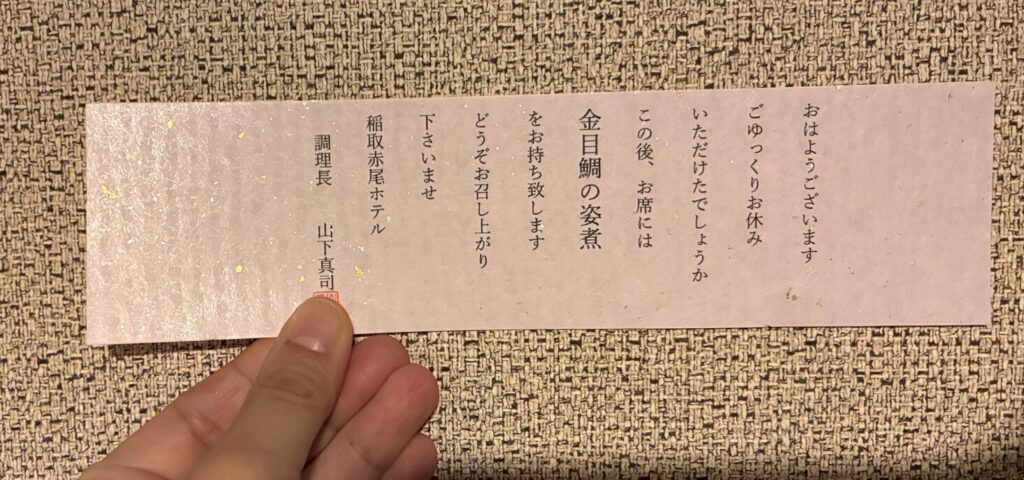 おはようございます
ごゆっくりお休み
いただけたでしょうか
この後、お席には
金目鯛の姿煮
をお持ち致します
どうぞお召し上がり
下さいませ
稲取赤尾ホテル
調理長　山下真司